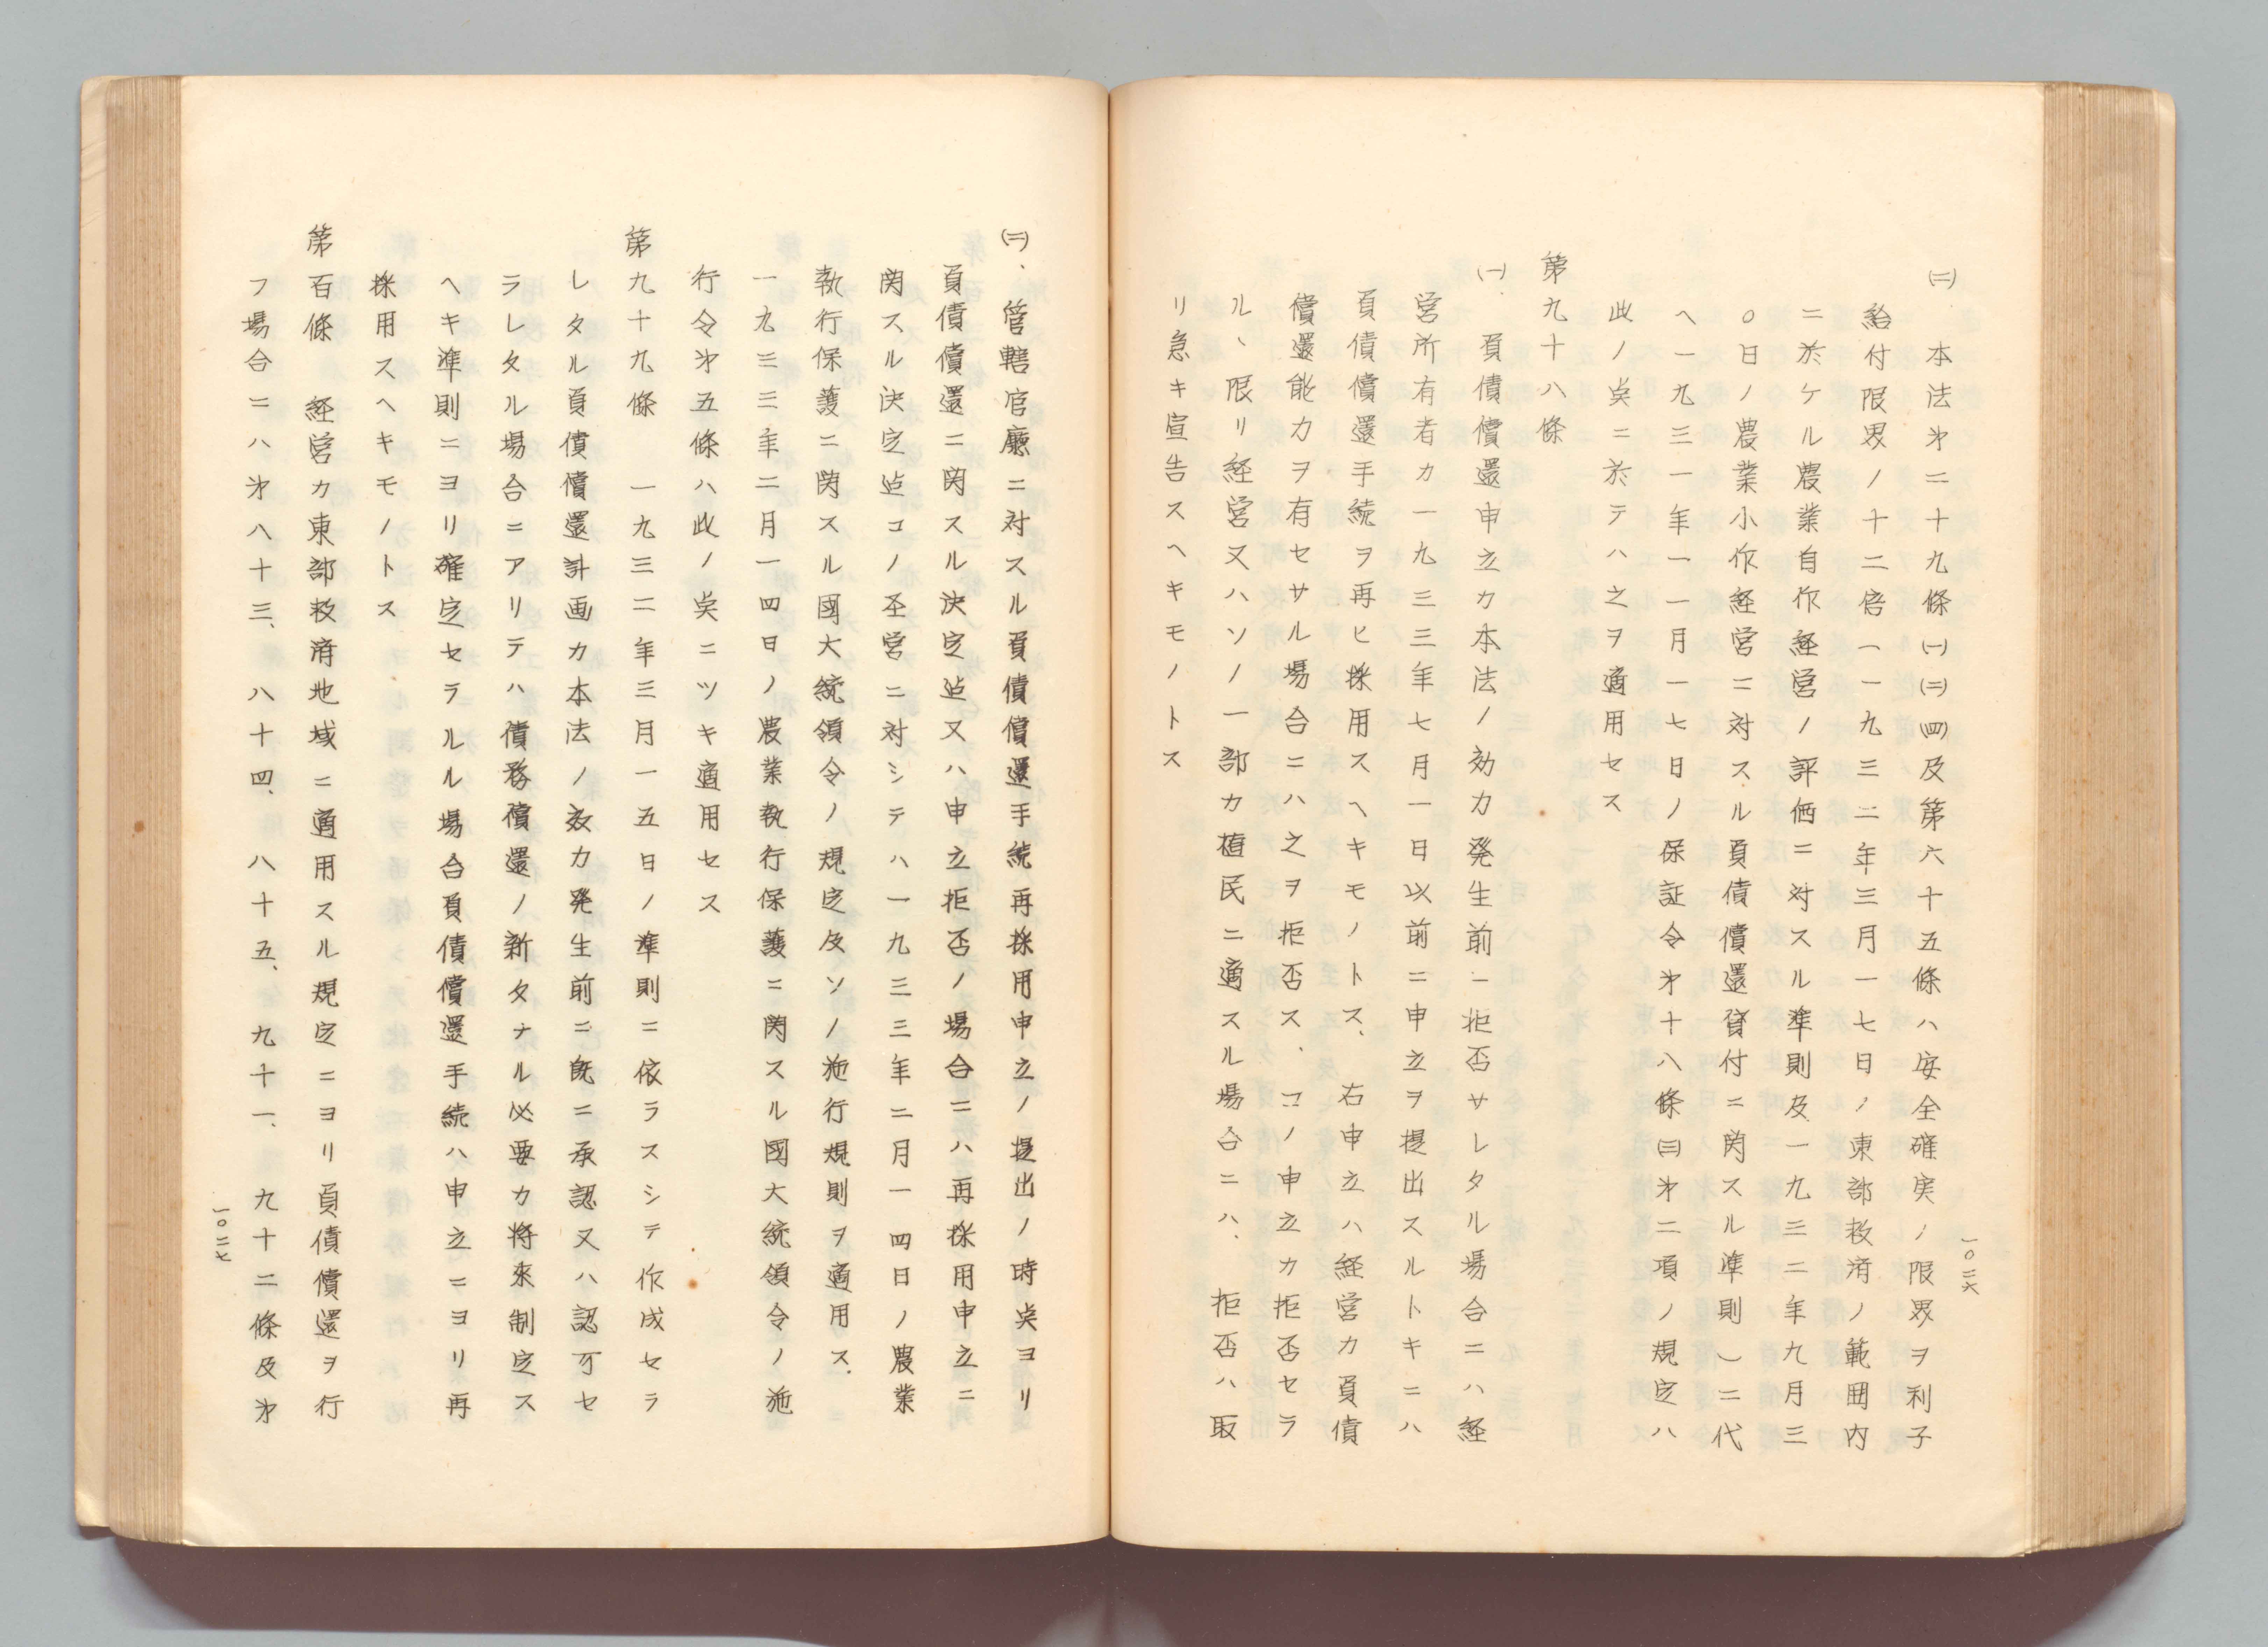 一〇二六
(二)、本法㐧二十九條(一)(二)(四)及第六十五條ハ安全確実ノ限界ヲ利子
給付限界ノ十二倍(一九三二年三月一七日ノ東部救済ノ範囲内
ニ於ケル農業自作経営ノ評価ニ対スル準則及一九三二年九月三
〇日ノ農業小作経営ニ対スル負債償還貸付ニ関スル準則)ニ代
ヘ一九三一年一一月一七日ノ保証令㐧十八條(三)㐧二項ノ規定ハ
此ノ点ニ於テハ之ヲ適用セス
第九十八條
(一)、負債償還申立カ本法ノ効力発生前ニ拒否サレタル場合ニハ経
営所有者カ一九三三年七月一日以前ニ申立ヲ提出スルトキニハ
負債償還手続ヲ再ヒ採用スヘキモノトス、右申立ハ経営カ負債
償還能力ヲ有セサル場合ニハ之ヲ拒否ス、コノ申立カ拒否セラ
ルヽ限リ経営又ハソノ一部カ植民ニ適スル場合ニハ、拒否ハ取
リ急キ宣告スヘキモノトス
(二)、管轄官廳ニ対スル負債償還手続再採用申立ノ提出ノ時点ヨリ
負債償還ニ関スル決定迄又ハ申立拒否ノ場合ニハ再採用申立ニ
関スル決定迄コノ圣営ニ対シテハ一九三三年二月一四日ノ農業
執行保護ニ関スル國大統領令ノ規定及ソノ施行規則ヲ適用ス、
一九三三年二月一四日ノ農業執行保護ニ関スル國大統領令ノ施
行令㐧五條ハ此ノ点ニツキ適用セス
第九十九條　一九三二年三月一五日ノ準則ニ依ラスシテ作成セラ
レタル負債償還計画カ本法ノ效力発生前ニ既ニ承認又ハ認可セ
ラレタル場合ニアリテハ債務償還ノ新タナル必要カ将來制定ス
ヘキ準則ニヨリ確定セラルル場合負債償還手続ハ申立ニヨリ再
採用スヘキモノトス
第百條　経営カ東部救済地域ニ適用スル規定ニヨリ負債償還ヲ行
フ場合ニハ㐧八十三、八十四、八十五、九十一、九十二條及㐧
一〇二七